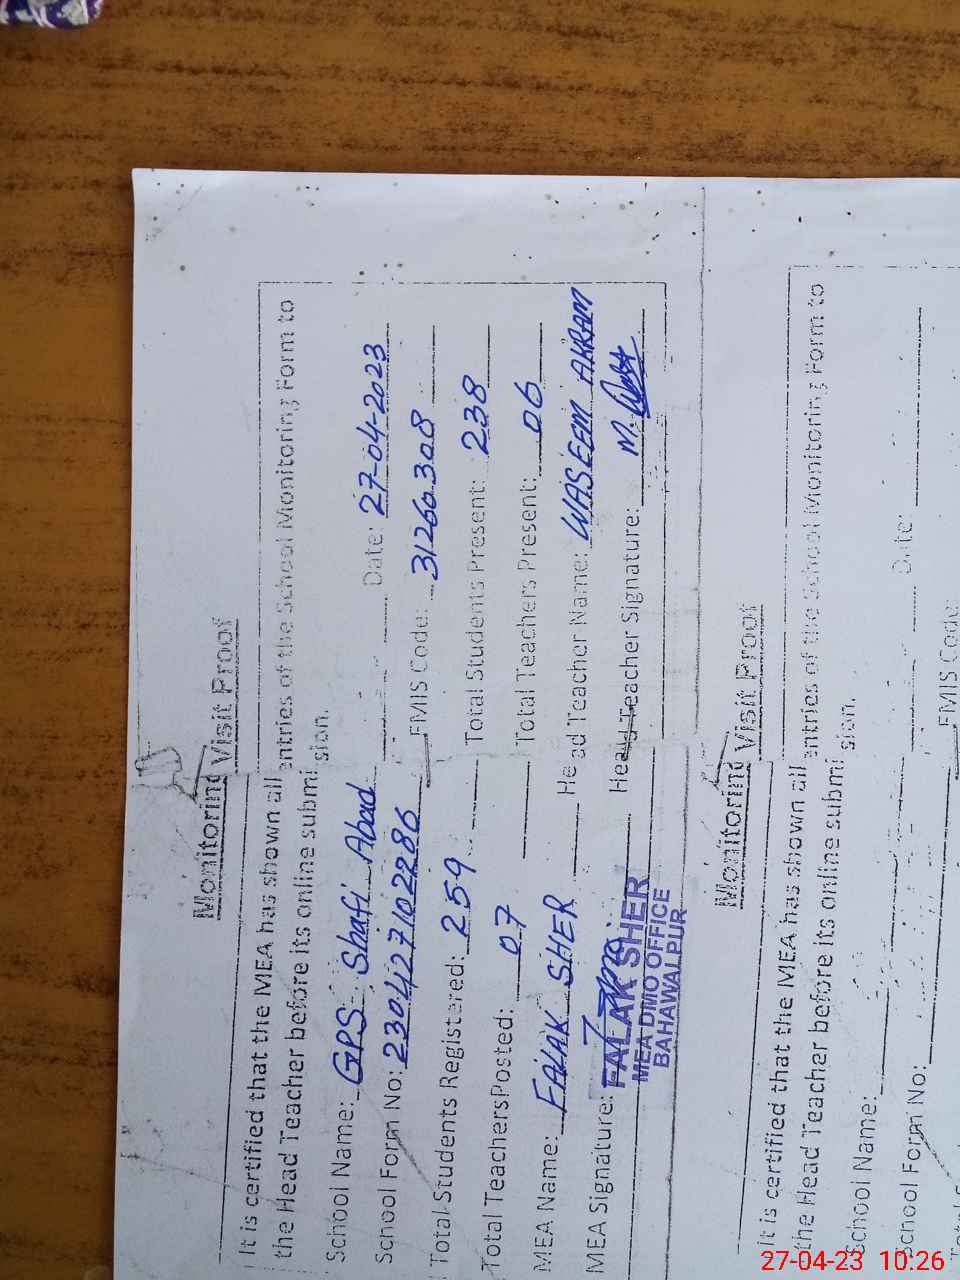 Monitoring Visit Proof
It is certified that the MEA has shown all entries of the School Monitoring Form to
the Head Teacher before its online submission.
School Name: GPS Shafi Abad Date: 27-04-2023
School Form No: 230427102286 EMIS Code: 31260308
Total Students Registered: 259 Total Students Present: 238
Total Teachers Posted: 07 Total Teachers Present: 06
MEA Name: FALAK SHER Head Teacher Name: WASEEM AKRAM
MEA Signature: Head Teacher Signature:
FALAK SHER
MEA DMO OFFICE
BAHAWALPUR
Monitoring Visit Proof
It is certified that the MEA has shown all entries of the School Monitoring Form to
the Head Teacher before its online submission.
School Name: Date:
School Form No: EMIS Code
27-04-23 10:26